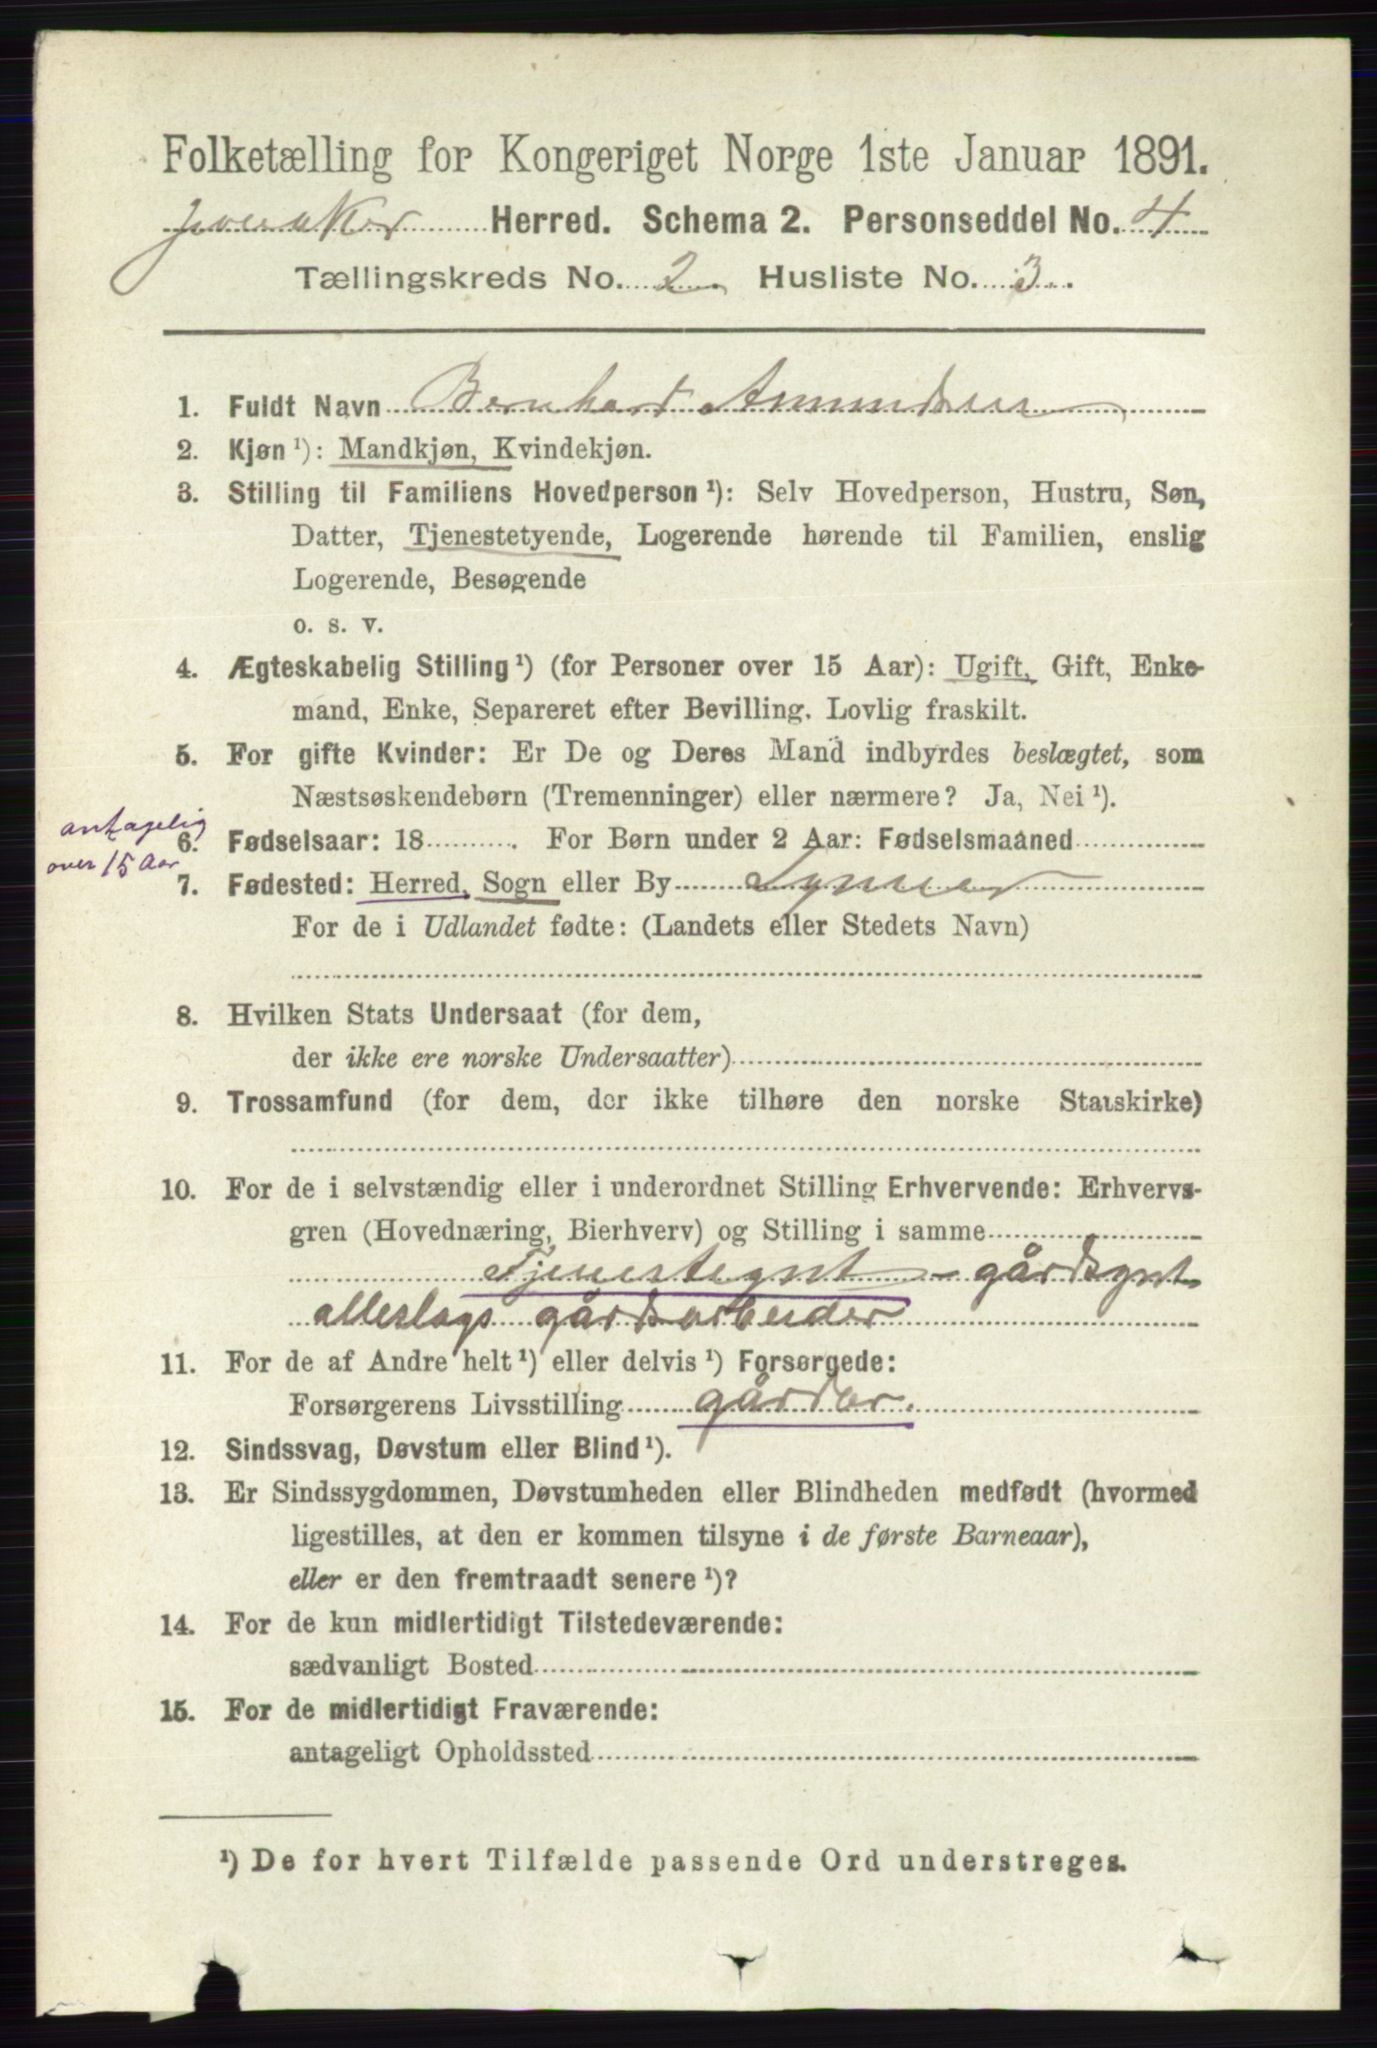 Folketælling for Kongeriget Norge 1ste Januar 1891.
Jevnaker Herred. Schema 2. Personseddel No. 4
Tællingskreds No. 2. Husliste No. 3.
1. Fuldt Navn Bernhard Amundsen
2. Kjøn ¹): Mandkjøn, Kvindekjøn.
3. Stilling til Familiens Hovedperson ¹): Selv Hovedperson, Hustru, Søn,
Datter, Tjenestetyende, Logerende hørende til Familien, enslig
Logerende, Besøgende
o. s. v.
4. Ægteskabelig Stilling ¹) (for Personer over 15 Aar): Ugift, Gift, Enke-
mand, Enke, Separeret efter Bevilling. Lovlig fraskilt.
5. For gifte Kvinder: Er De og Deres Mand indbyrdes beslægtet, som
Næstsøskendebørn (Tremenninger) eller nærmere? Ja, Nei ¹).
antagelig
over 15 Aar
6. Fødselsaar: 18 . For Børn under 2 Aar: Fødselsmaaned
7. Fødested: Herred, Sogn eller By Lynner
For de i Udlandet fødte: (Landets eller Stedets Navn)
8. Hvilken Stats Undersaat (for dem,
der ikke ere norske Undersaatter)
9. Trossamfund (for dem, der ikke tilhøre den norske Statskirke)
10. For de i selvstændig eller i underordnet Stilling Erhvervende: Erhvervs-
gren (Hovednæring, Bierhverv) og Stilling i samme
Tjenestegut - gårdsgut
alleslags gårdsarbeider
11. For de af Andre helt ¹) eller delvis ¹) Forsørgede:
Forsørgerens Livsstilling gårdbr.
12. Sindssvag, Døvstum eller Blind ¹).
13. Er Sindssygdommen, Døvstumheden eller Blindheden medfødt (hvormed
ligestilles, at den er kommen tilsyne i de første Barneaar),
eller er den fremtraadt senere ¹)?
14. For de kun midlertidigt Tilstedeværende:
sædvanligt Bosted
15. For de midlertidigt Fraværende:
antageligt Opholdssted
¹) De for hvert Tilfælde passende Ord understreges.